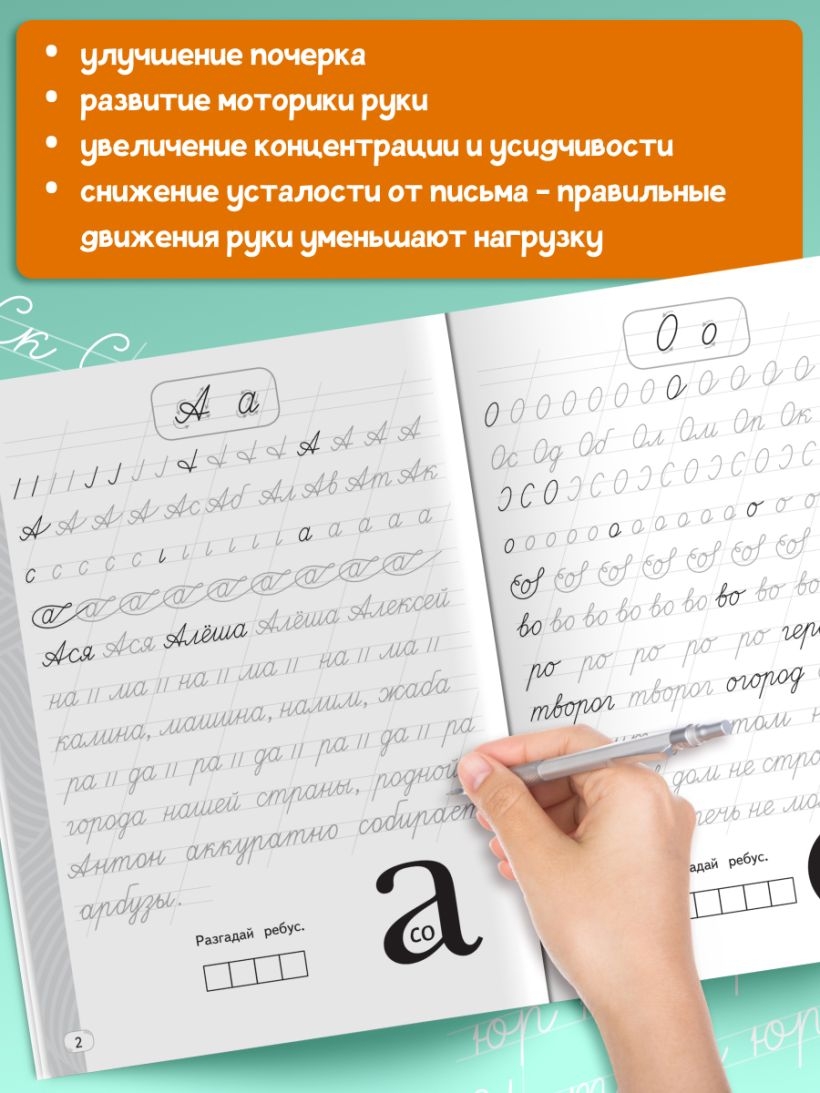 • улучшение почерка
• развитие моторики руки
• увеличение концентрации и усидчивости
• снижение усталости от письма - правильные
движения руки уменьшают нагрузку
к С
А а
А А А А
А А А А Ас Аб Ал Ав Ат Ак
с с с с с а а а а а
а а а а а а а а а
Ася Ася Алёша Алёша Алексей
на // ма // на // ма // на // ма //
калина, машина, налим, жаба
ра // да // ра // да // ра // да // ра
города нашей страны, родной
Антон аккуратно собирает
арбузы.
Разгадай ребус.
а
со
2
О о
О О О О О О О О О О О О
Ос Од Об Ол Ом Оп Ок
о о о о о о о о о о о о
во во во во во во во во во
ро ро ро ро ро
творог творог огород
том
дом не стро
печь не мо
адай ребус.
юр
юр